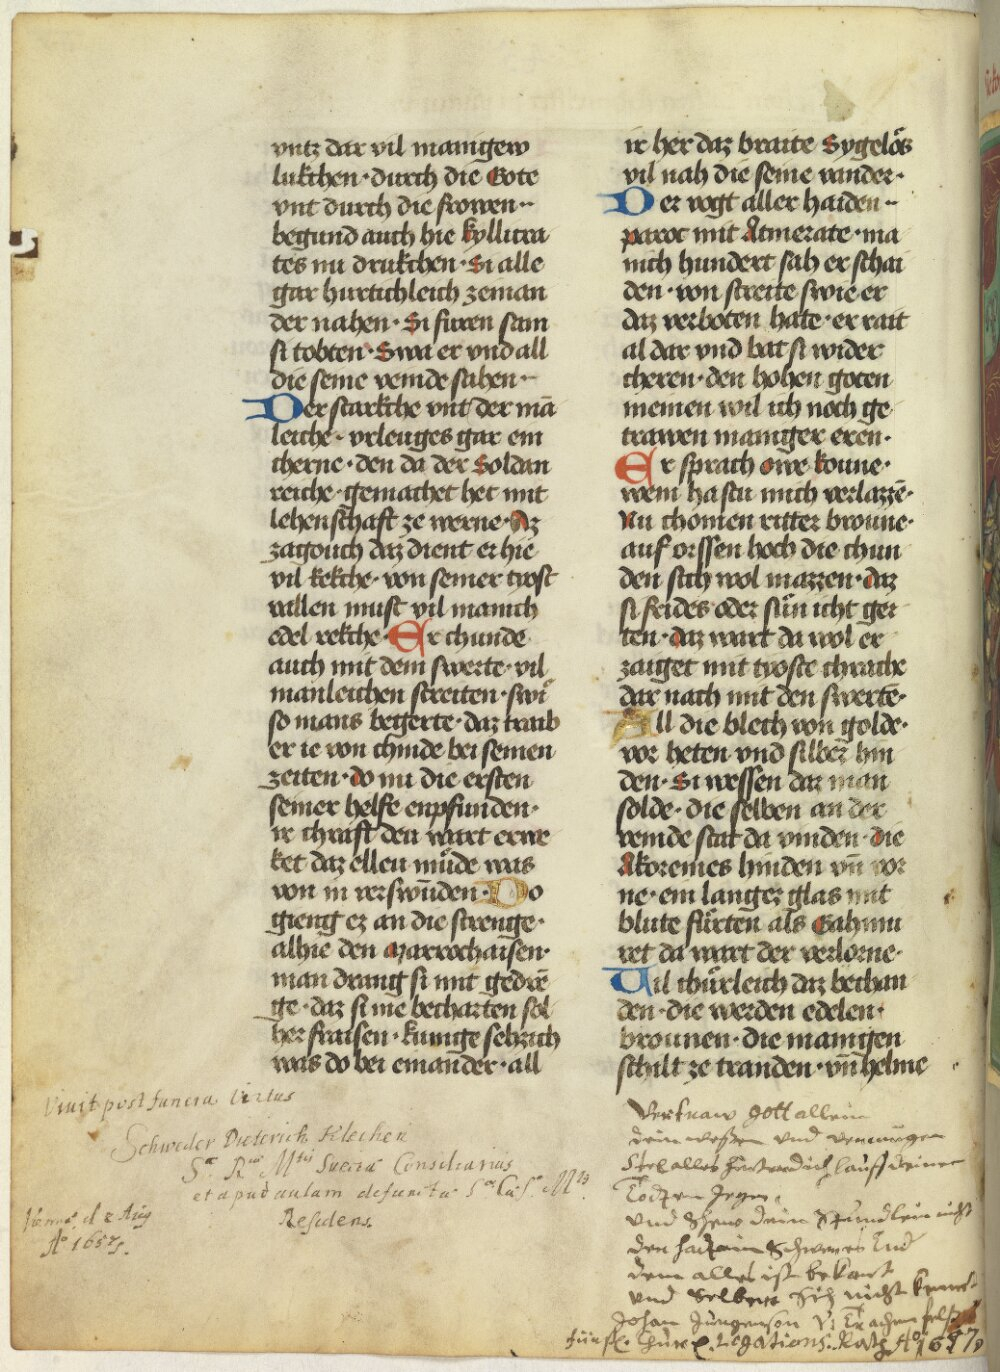 vntz dar vil manigew
lukchen · durch die Gote
vnt durch die frowen ··
begund auch hie kyllicra
tes nu drukchen · Si alle
gar hurtichleich zeman
der nahen · Si furen sam
si tobten · Swa er vnd all
die seine veinde sahen ··
Der starkche vnt der mā
leiche · vrleuges gar ein
cherne · den da der Soldan
reiche · gemachet het mit
lehenschaft ze werne · Az
zagouch daz dient er hie
vil kekche · von seiner tyost
vallen must vil manich
edel rekche · Er chunde
auch mit dem swerte · vil
manleichen streiten · swi
so mans begerte · daz traib
er ie von chinde bei seinen
zeiten · do nu die ersten
seiner helfe enpfunden ·
ir chraft den wart erwe
ket daz ellen müde was
von in verswūden · Do
gieng ez an die strenge ·
alhie den Marrochaisen ·
man drang si mit gedrē
ge · daz si nie becharten sol
her fraisen · kunige sehzich
was do bei einander · all
ir her daz braite Sygelös
vil nah die seine vander ·
Der vogt aller haiden ··
paroc mit Atmerate · ma
nich hundert sah er schai
den · von streite swie er
daz verboten hate · er rait
al dar vnd bat si wider
cheren · den hohen goten
meinen wil ich noch ge
trawen maniger eren ·
Er sprach owe koune ·
wem hastu mich verlazzē ·
Nu chomen ritter broune ·
auf orssen hoch die chun
den sich wol mazzen · daz
si frides oder sün icht ger
ten · daz wart da wol er
zaiget mit tyoste chrache
dar nach mit den swertē ·
All die blech von golde ·
vor heten vnd silber hin
den · Si wessen daz man
solde · die selben an der
veinde stat da vinden · die
Akoreines hinden vn̄ vor
ne · ein langer glas mit
blute fürten als Gahmu
ret da wart der verlorne ·
Vil thürleich daz bechan
den · die werden edelen ·
brounen · die manigen
schilt ze tranden · vn̄ helme
Viuit post funera Virtus
Schweder Dieterich Klechen
Sæ Ræ Mtis Sueciæ Consiliarius
et apud aulam defunctæ Sæ Cæsæ Mtis
Residens.
Viennæ d. 2 Aug
Ao 1657.
Gott allein
dein und
Stel alles
und dein Stündlein nicht
den Schweres End
dem alles ist bekant
und Selben Sich nicht
Johan Jürgenson
Legations Rath Ao 1657